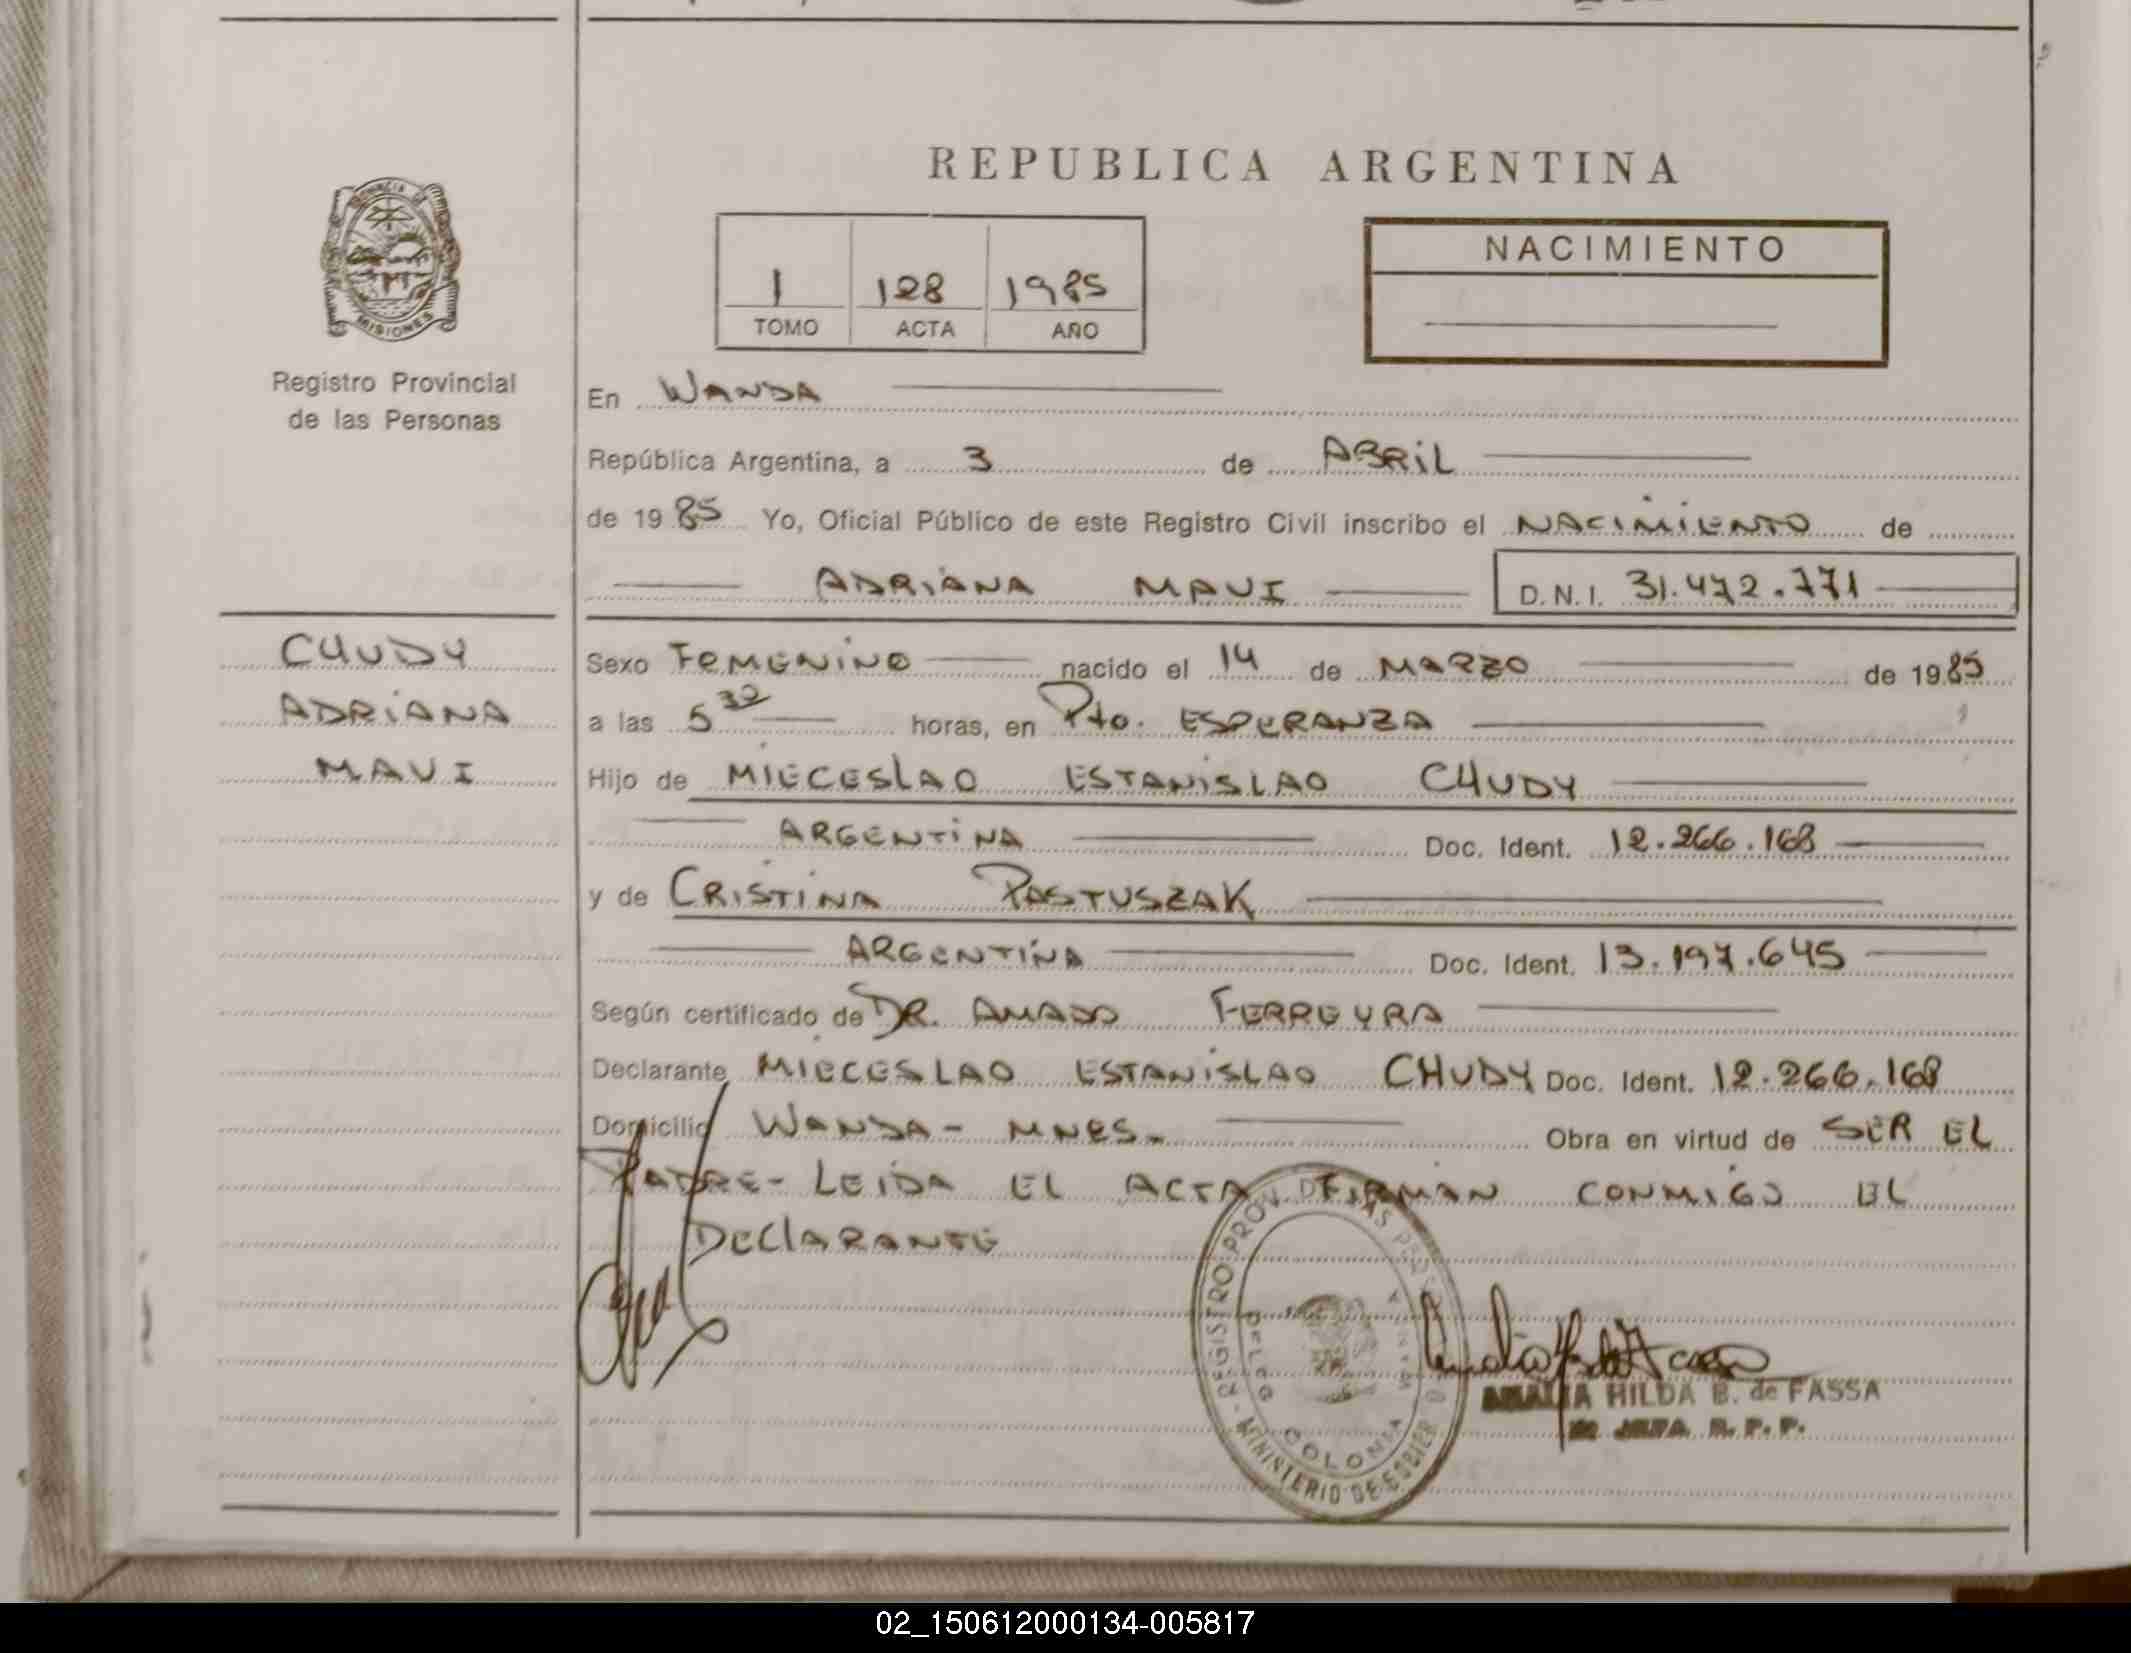 REPUBLICA ARGENTINA
PROVINCIA DE
MISIONES
Registro Provincial
de las Personas
1 128 1985
TOMO ACTA AÑO
NACIMIENTO
En WANDA
República Argentina, a 3 de ABRIL
de 19 85 Yo, Oficial Público de este Registro Civil inscribo el NACIMIENTO de
ADRIANA MAUI D.N.I. 31.472.771
CHUDY
ADRIANA
MAUI
Sexo FEMENINO nacido el 14 de MARZO de 19 85
a las 5 30 horas, en Pto. ESPERANZA
Hijo de MIECESLAO ESTANISLAO CHUDY
ARGENTINA Doc. Ident. 12.266.168
y de CRISTINA PASTUSZAK
ARGENTINA Doc. Ident. 13.197.645
Según certificado de DR. AMADO FERREYRA
Declarante MIECESLAO ESTANISLAO CHUDY Doc. Ident. 12.266.168
Domicilio WANDA - MNES. Obra en virtud de SER EL
PADRE - LEIDA EL ACTA FIRMAN CONMIGO EL
DECLARANTE
REGISTRO PROV. DE LAS
COLONIA WANDA
MINISTERIO DE GOBIERNO
AMALIA HILDA B. de FASSA
JEFA R. P. P.
02_150612000134-005817